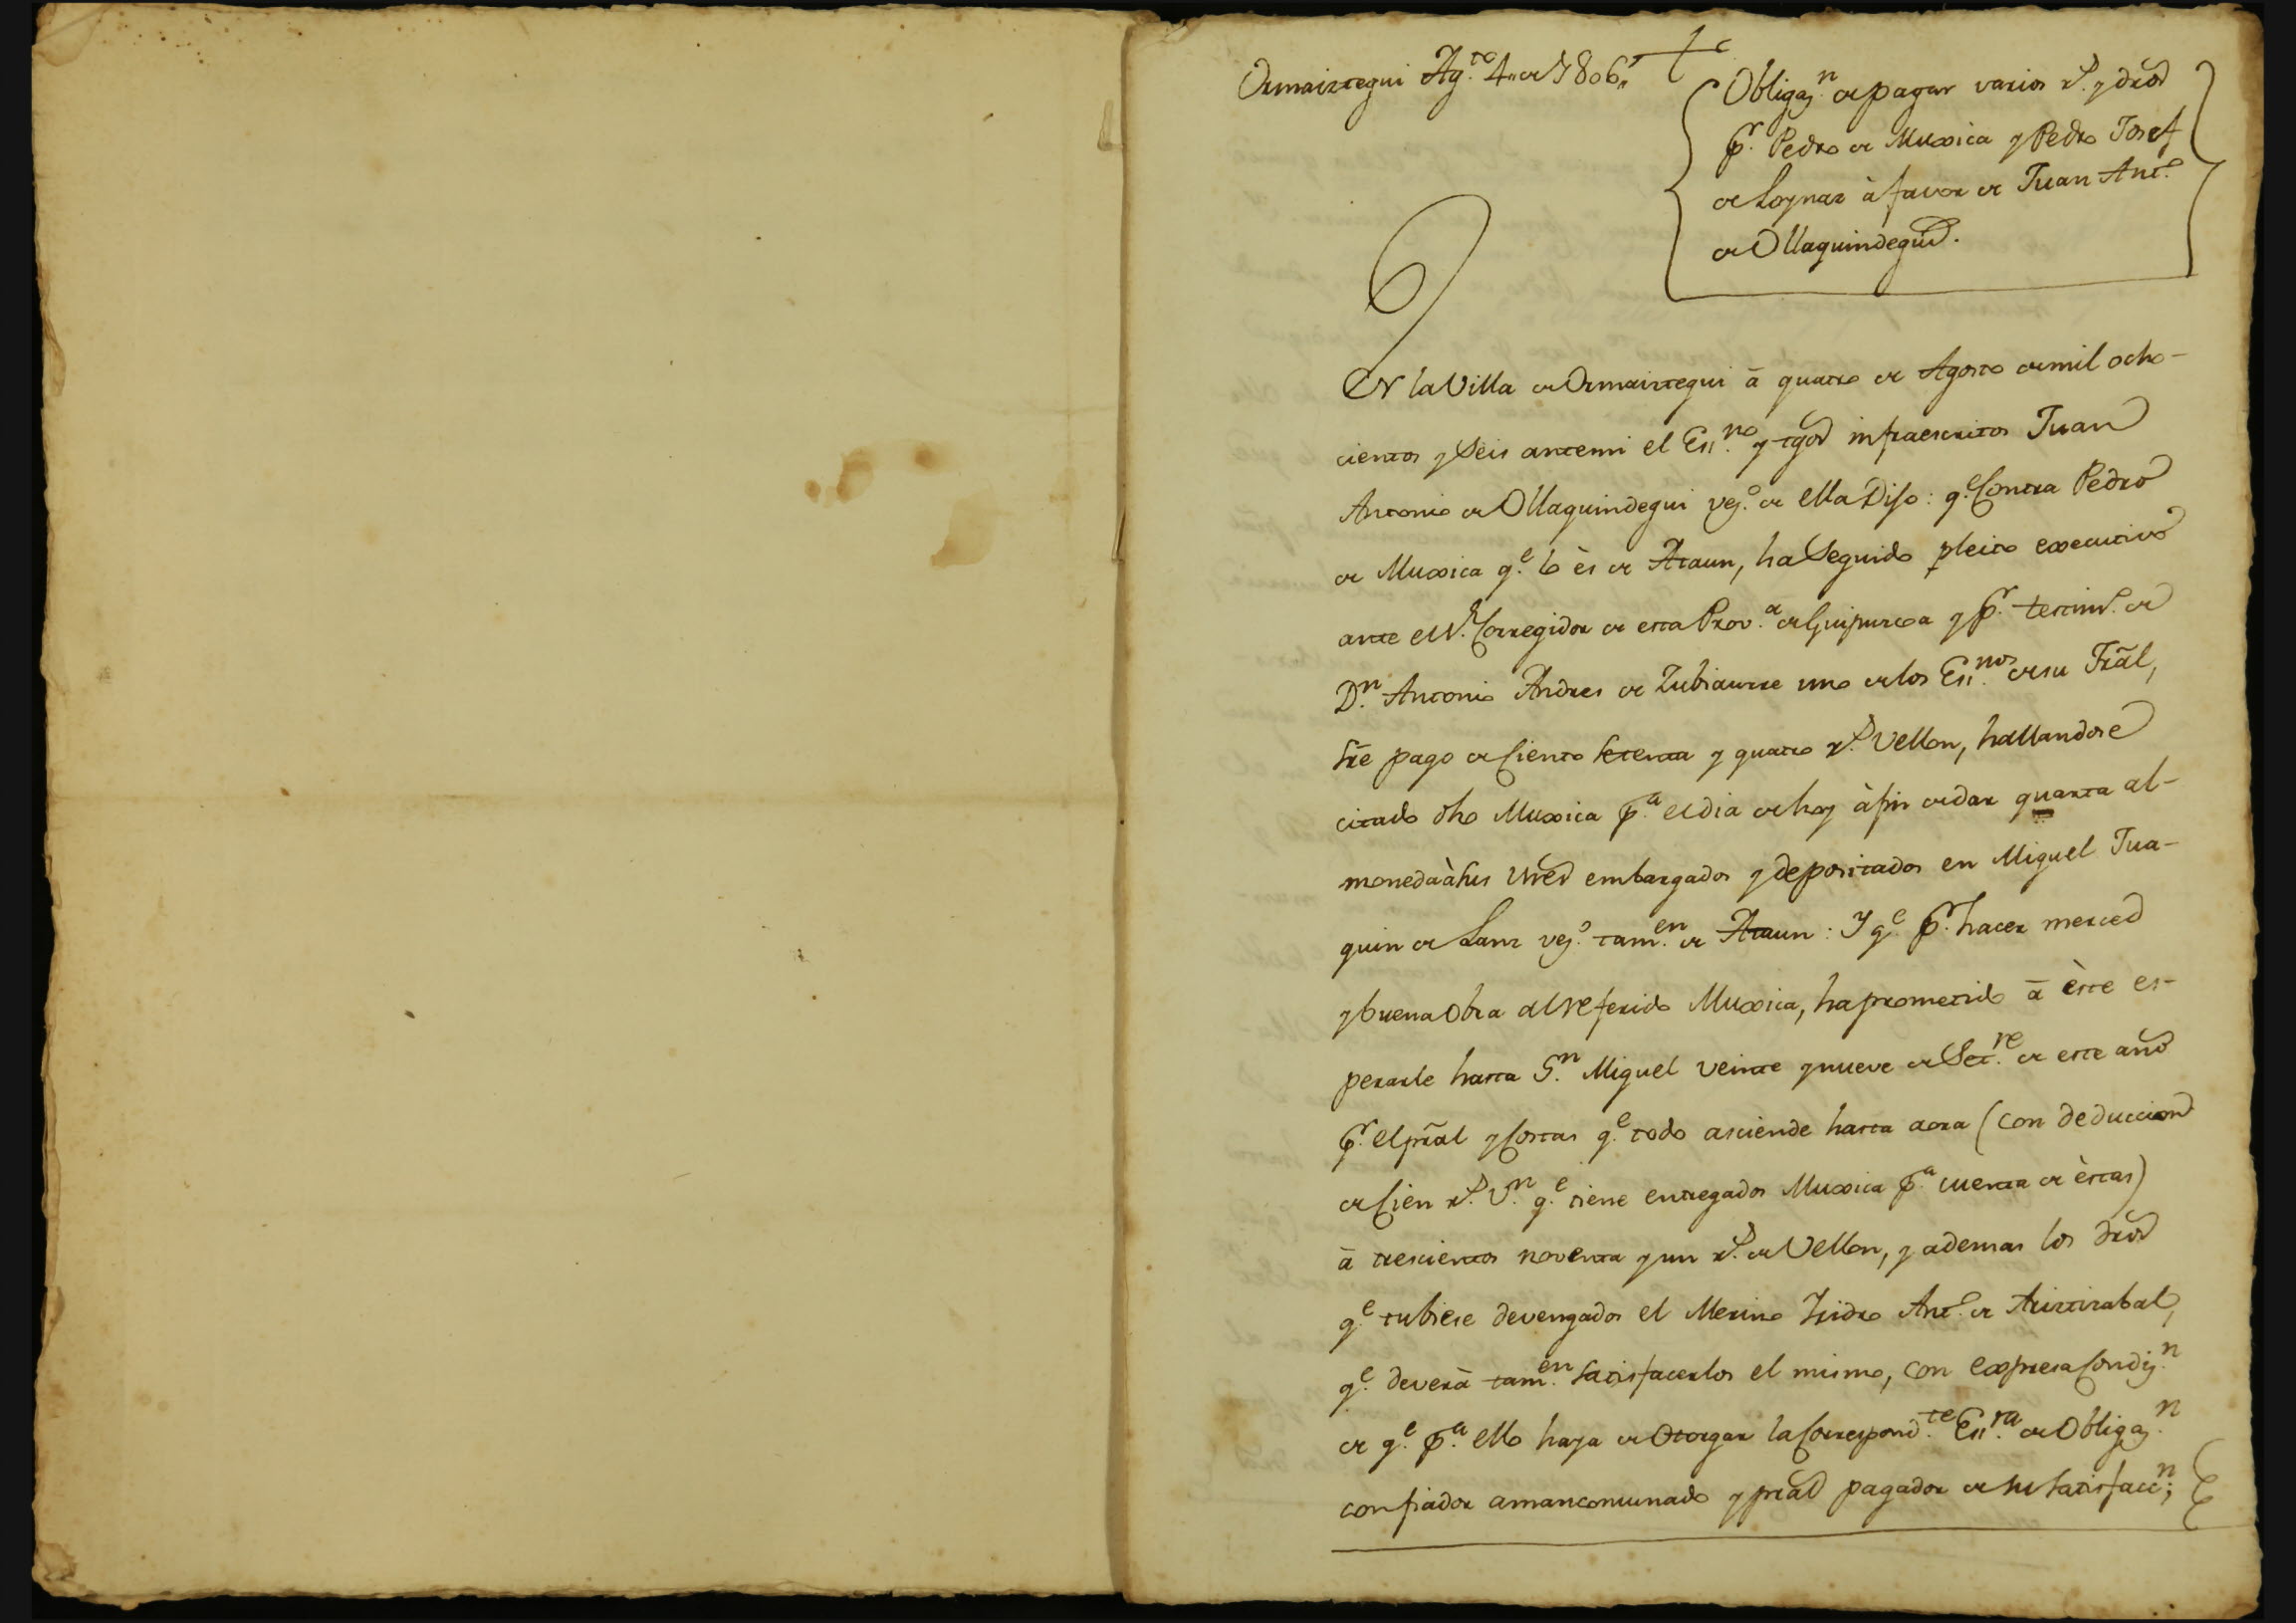 Ormaiztegui Ag.to 4,, de 1806,,
Obligaz.n de pagar varios r.s y dros
p.r Pedro de Muxica y Pedro Josef
de Loynaz à favor de Juan Ant.o
de Ollaquindegui.
EN la Villa de Ormaiztegui â quatro de Agosto de mil ocho-
cientos y Seis ante mi el Ess.no y tgos infraescritos Juan
Antonio de Ollaquindegui vez.o de ella Dijo: q.e Contra Pedro
de Muxica q.e lo ès de Ataun, ha Seguido pleito executivo
ante el S.r Corregidor de esta Prov.a de Guipuzcoa y p.r testim.o de
D.n Antonio Andres de Zubiaurre uno de los Ess.nos de su Trãl,
sre pago de Ciento setenta y quatro r.s Vellon, hallandose
citado dho Muxica p.a el dia de hoy à fin de dar quarta al-
moneda à sus vnes embargados y depositados en Miguel Jua-
quin de Sanz vez.o tam.en de Ataun: Y q.e p.r hacer merced
y buena Obra al referido Muxica, ha prometido â èste es-
perarle hasta S.n Miguel veinte y nueve de Set.re de este año
p.r el prãl y Costas q.e todo asciende hasta aora (con deduccion
de Cien r.s V.n q.e tiene entregados Muxica p.a cuenta de èstas)
â trescientos noventa y un r.s de Vellon, y ademas los dros
q.e tubiese devengados el Merino Ysidro Ant.o de Aristizabal,
q.e deverà tam.en satisfacerlos el mismo, con expresa Condiz.n
de q.e p.a ello haya de Otorgar la Correspond.te Ess.ra de Obligaz.n
con fiador amancomunado y prãl pagador de su satisfacc.n;